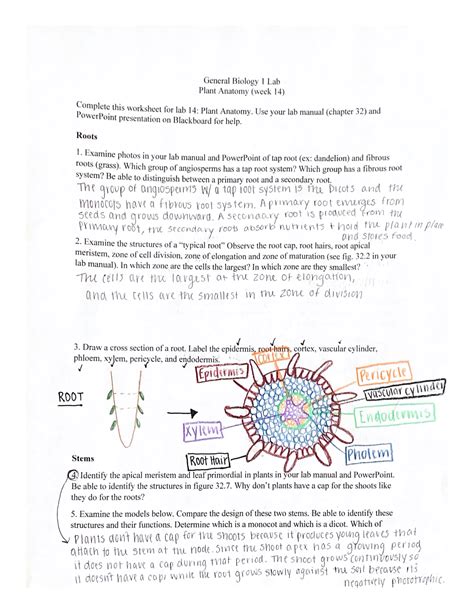 General Biology 1 Lab
Plant Anatomy (week 14)
Complete this worksheet for lab 14: Plant Anatomy. Use your lab manual (chapter 32) and
PowerPoint presentation on Blackboard for help.
Roots
1. Examine photos in your lab manual and PowerPoint of tap root (ex: dandelion) and fibrous
roots (grass). Which group of angiosperms has a tap root system? Which group has a fibrous root
system? Be able to distinguish between a primary root and a secondary root.
The group of angiosperms w/ a tap root system is the Dicots and the
monocots have a fibrous root system. A primary root emerges from
seeds and grows downward. A secondary root is produced from the
Primary root, the secondary roots absorb nutrients + hold the plant in place
and stores food
2. Examine the structures of a "typical root" Observe the root cap, root hairs, root apical
meristem, zone of cell division, zone of elongation and zone of maturation (see fig. 32.2 in your
lab manual). In which zone are the cells the largest? In which zone are they smallest?
The cells are the largest at the zone of elongation,
and the cells are the smallest in the zone of division
3. Draw a cross section of a root. Label the epidermis, root hairs, cortex, vascular cylinder,
phloem, xylem, pericycle, and endodermis.
Cortex
Epidermis
Pericycle
vascular cylinder
ROOT
Endodermis
Xylem
Root Hair
Pholem
Stems
4. Identify the apical meristem and leaf primordial in plants in your lab manual and PowerPoint.
Be able to identify the structures in figure 32.7. Why don't plants have a cap for the shoots like
they do for the roots?
5. Examine the models below. Compare the design of these two stems. Be able to identify these
structures and their functions. Determine which is a monocot and which is a dicot. Which of
Plants don't have a cap for the shoots because it produces young leaves that
attach to the stem at the node. Since the shoot apex has a growing period
it does not have a cap during that period. The shoot grows continuously so
it doesn't have a cap while the root grows slowly against the soil because its
negatively phototrophic.